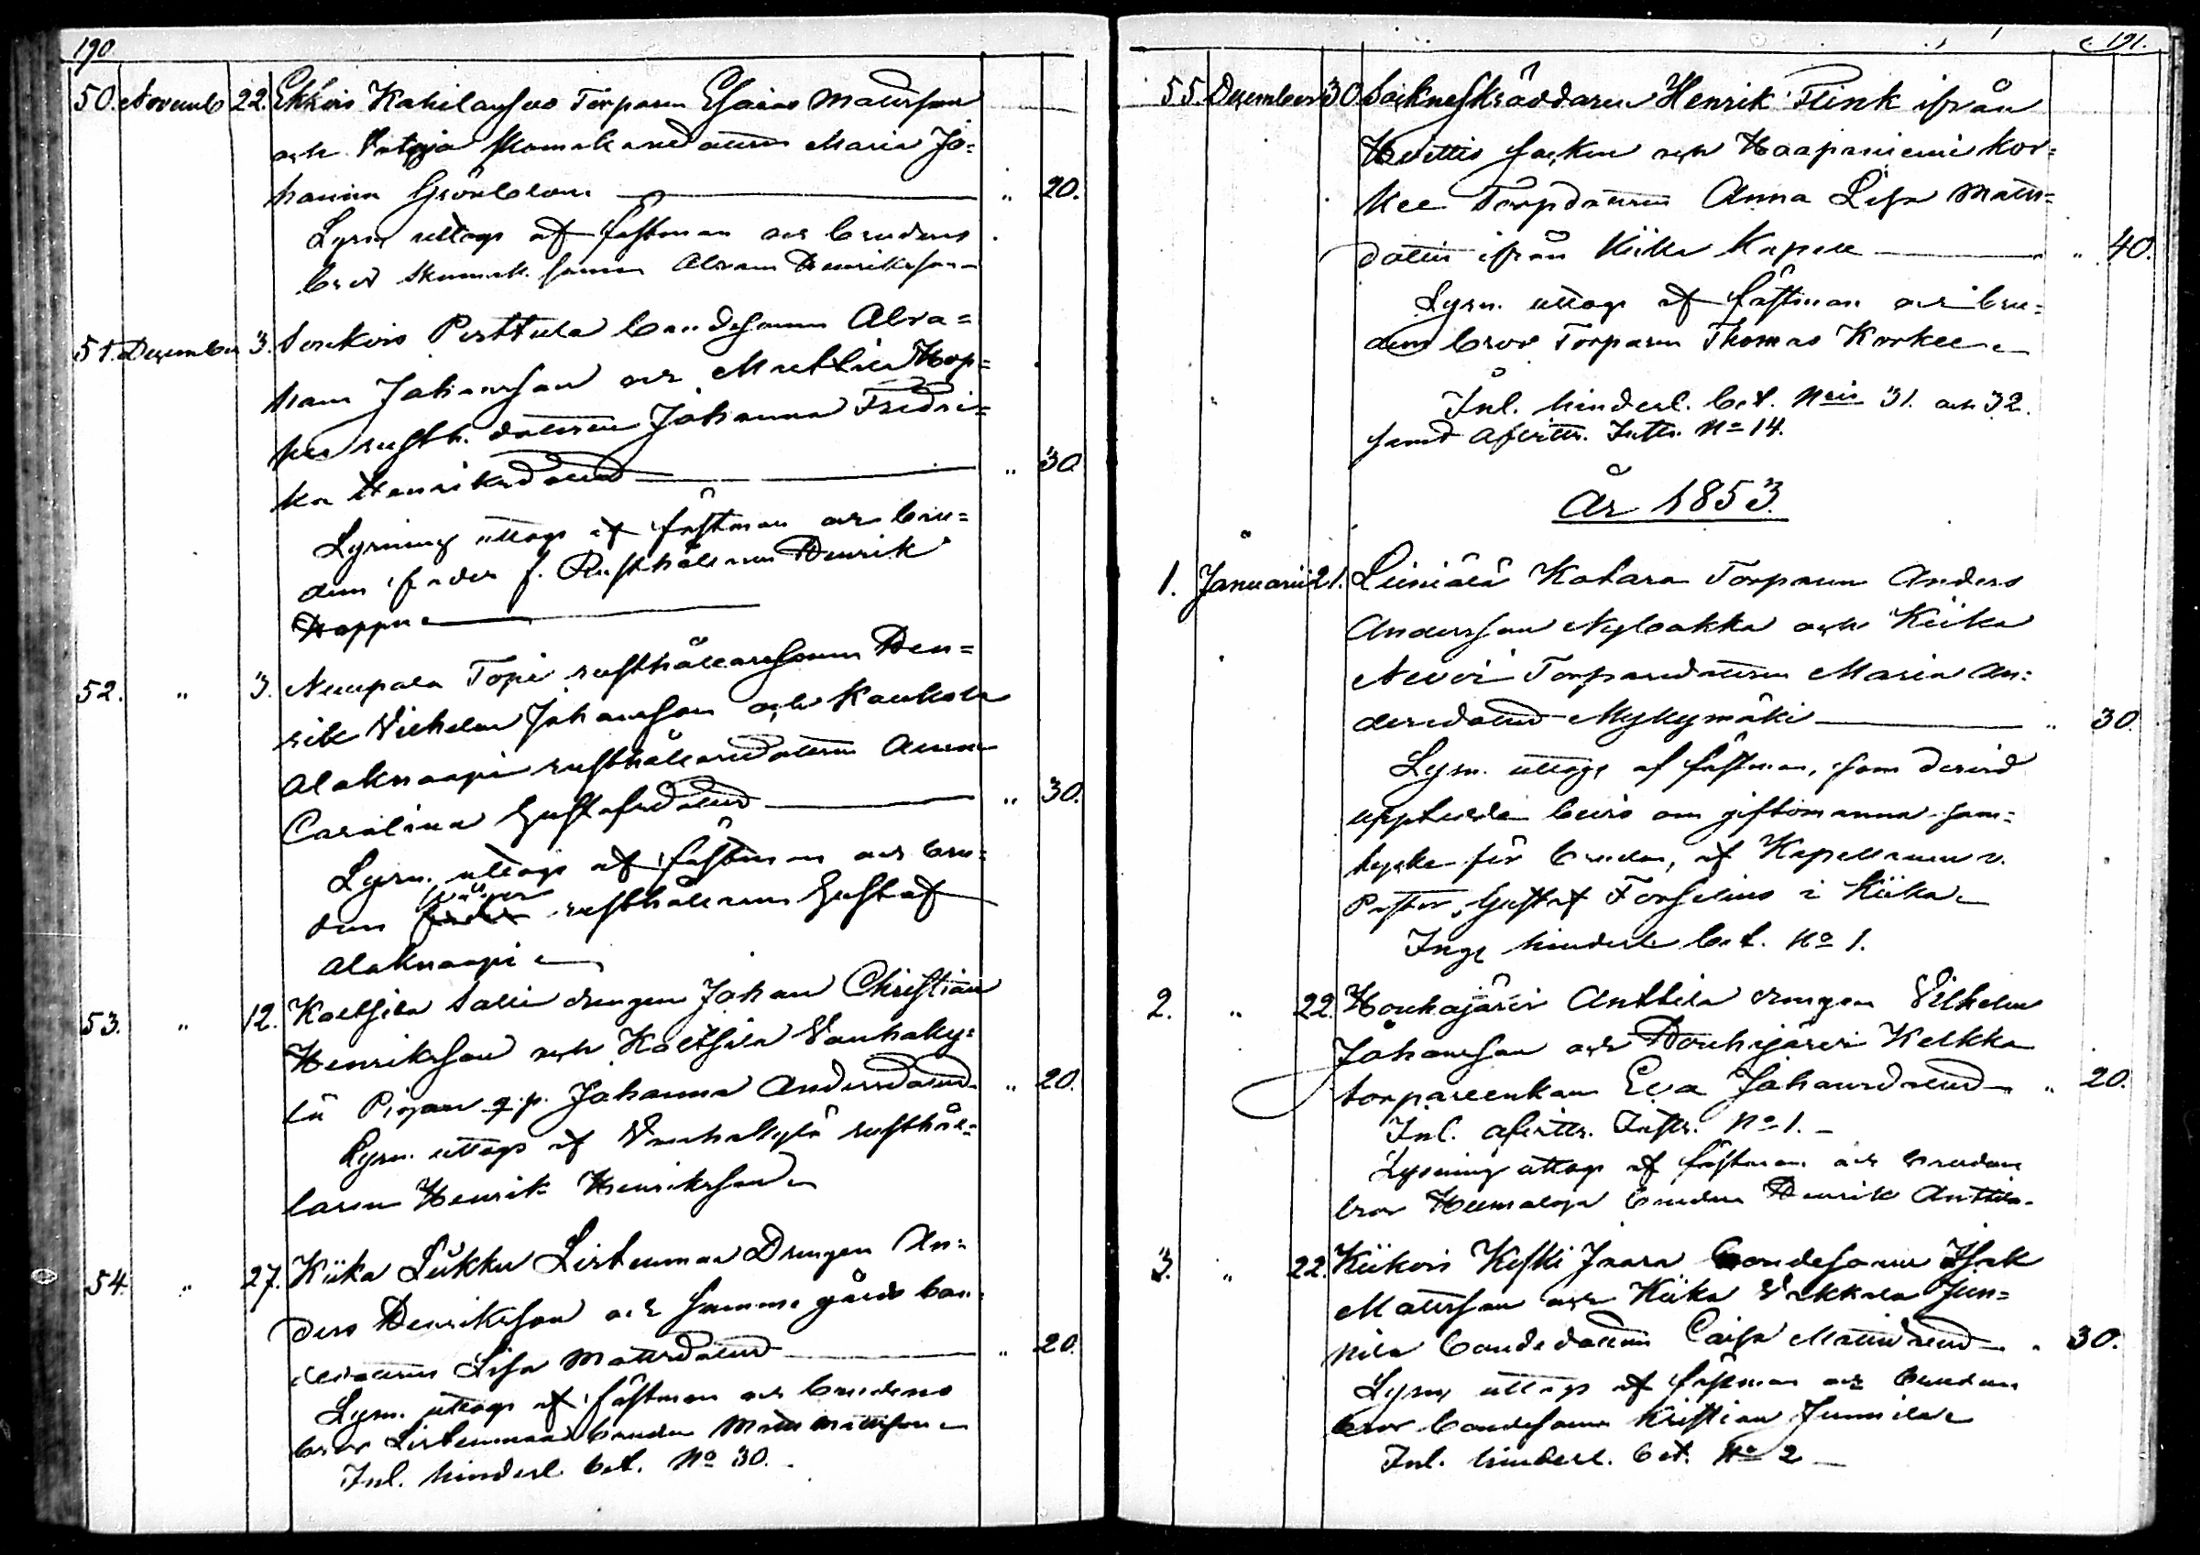 190.
50. Novemb 22. Ekkois Torparen Esaias Mattsson
och Maria Jo=
hanna Grönblom " 20.
Lysn. uttogs af fästman och brudens
bror Abram Henriksson
51. December 3. Sonkois Perttula bondesonen Abra=
ham Johansson och Hop=
pu rusth. dottren Johanna Fredri=
ka Henriksdotter " 30
Lysning uttogs af fästman och bru=
dens fader f. Rusthållaren Henrik
Hoppu
52. " 3. Nuupala Topi rusthållaresonen Hen=
rik Vilhelm Johansson och Kaukola
Alaknaapi rusthållaredottren Anna
Carolina Gustafsdotter " 30.
Lysn. uttogs af fästman och bru=
dens rusthållaren Gustaf
Alaknaapi
53. " 12. Salli drengen Johan Christian
Henriksson och Vanhaky=
lä Pigan q.p. Johanna Andersdotter " 20.
Lysn. uttogs af Vanhakylä rusthål=
laren Henrik Henriksson
54. " 27. Kiika Liukku Listenmaa Drengen An=
ders Henriksson och samma gårds bon=
dedottren Lisa Mattsdotter " 20.
Lysn. uttogs af fästman och brudens
bror Listenmaa bonden Matts Mattsson
Inl. hinderl. bet. No 30.
191.
55. December 30. Sockneskräddaren Henrik Flink ifrån
Hvittis socken och Haapaniemi Kor=
kee Torpdottren Anna Lisa Matts=
dotter ifrån Kiikka Kapell " 40.
Lysn. uttogs af fästman och bru=
dens bror Torparen Thomas Korkee
Inl. hinderl. bet. Nris 31. och 32.
samt Afvittr. Instr. No 14.
År 1853.
1. Januarii 21. Liiniälä Katara Torparen Anders
Andersson Nybakka och Kiika
Torparedottren Maria An=
dersdotter Myllymäki " 30.
Lysn. uttogs af fästman, som dervid
uppteedde bevis om giftomanna sam=
tycke för bruden, af Kapellanen v.
Pastor Gustaf Forselius i Kiika
Inge hinderl. bet. No 1.
2. " 22. Houhajärvi Anttila drengen Vilhelm
Johansson och Houhijärvi Kelkka
torpareenkan Eva Johansdotter " 20.
Inl. afvittr. Instr. No 1.
Lysning uttogs af fästman och brudens
bror bonden Henrik Anttila
3. " 22. Kiikois Keski Jaara bondesonen Isak
Mattsson och Kiika Jun=
nila bondedottren Caisa Mattsdotter " 30.
Lysn. uttogs af fästman och brudens
bror bondesonen Kristian Junnila
Inl. hinderl. bet. No 2